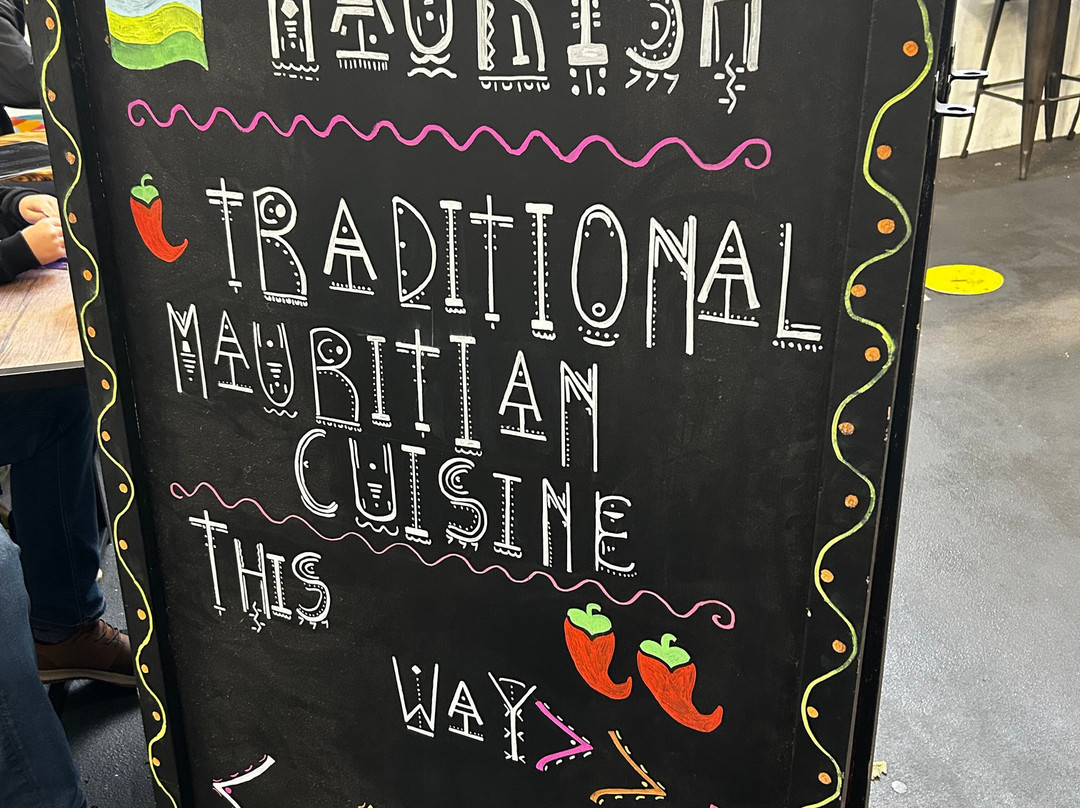 MAURISH
TRADITIONAL
MAURITIAN
CUISINE
THIS
WAY